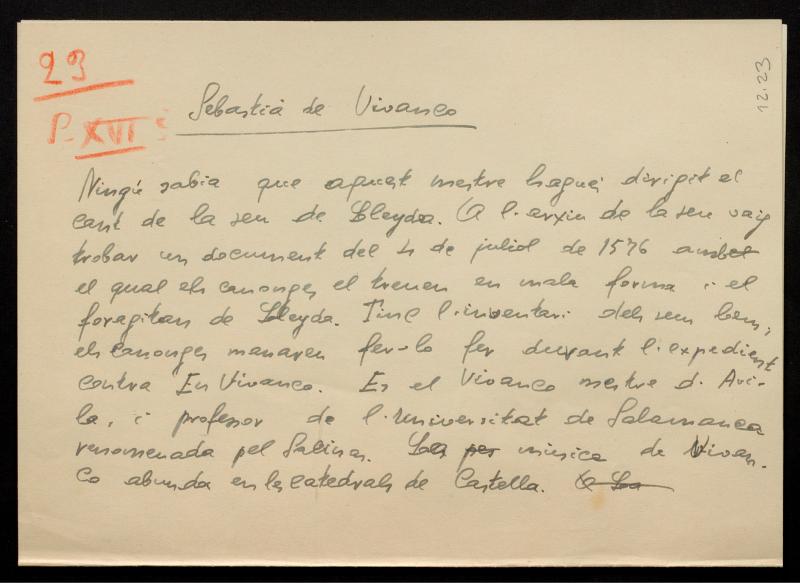 29
P. XVI
12.23
Sebastià de Vivanco
Ningú sabia que aquest mestre hagués dirigit el
cant de la seu de Lleyda. A l'arxiu de la seu vaig
trobar un document del 4 de juliol de 1576 ambel
el qual els canonges el treuen en mala forma i el
foragitan de Lleyda. Tinc l'inventari dels seus bens,
els canonges manaren fer-lo fer durant l'expedient
contra En Vivanco. Es el Vivanco mestre d'Avi-
la, i professor de l'Universitat de Salamanca
renomenada pel Salinas. La música de Vivan-
co abunda en les catedrals de Castella. A La